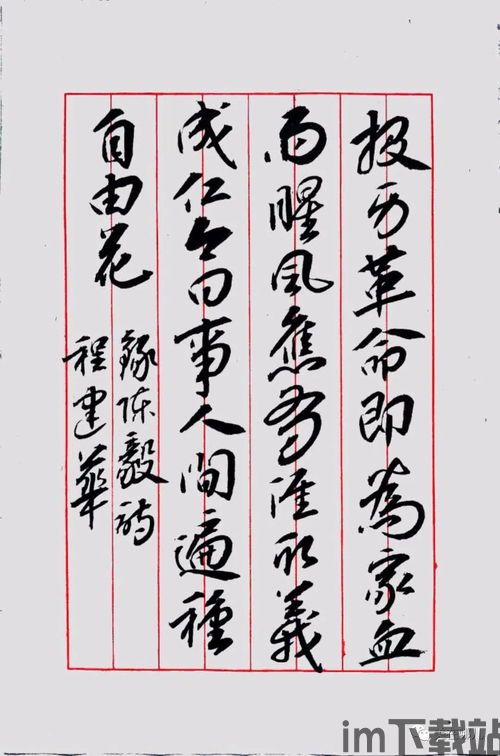 投身革命即為家血
雨腥風應有涯取義
成仁今日事人間遍種
自由花
錄陳毅詩
程建華
im下载站